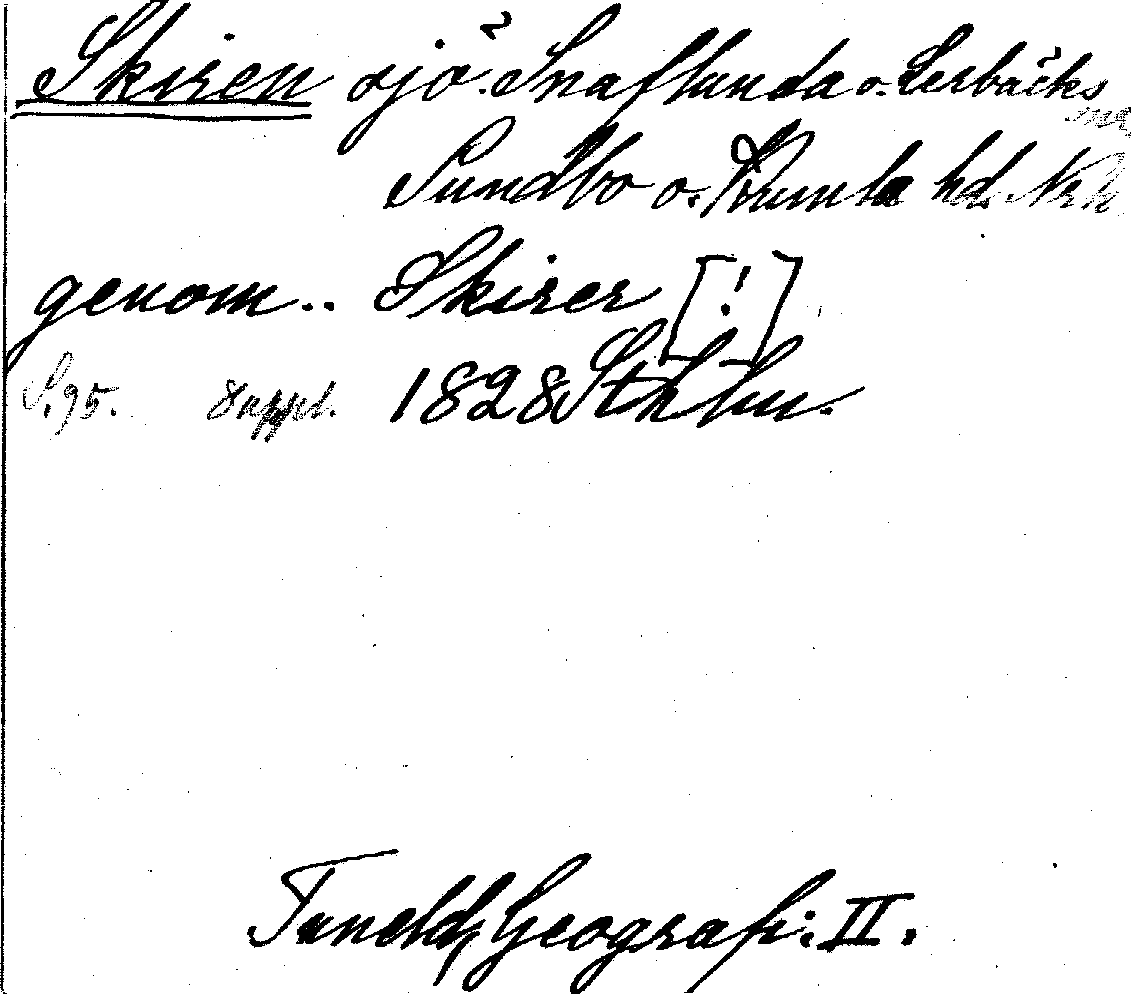 Skiren sjö. Snaflunda o. Lerbäcks
Sundbo o. Kumla hd. Nrk
genom.. Skirer [!]
S. 95. Suppl. 1828 Sthlm.
Tuneld, Geografi: II.